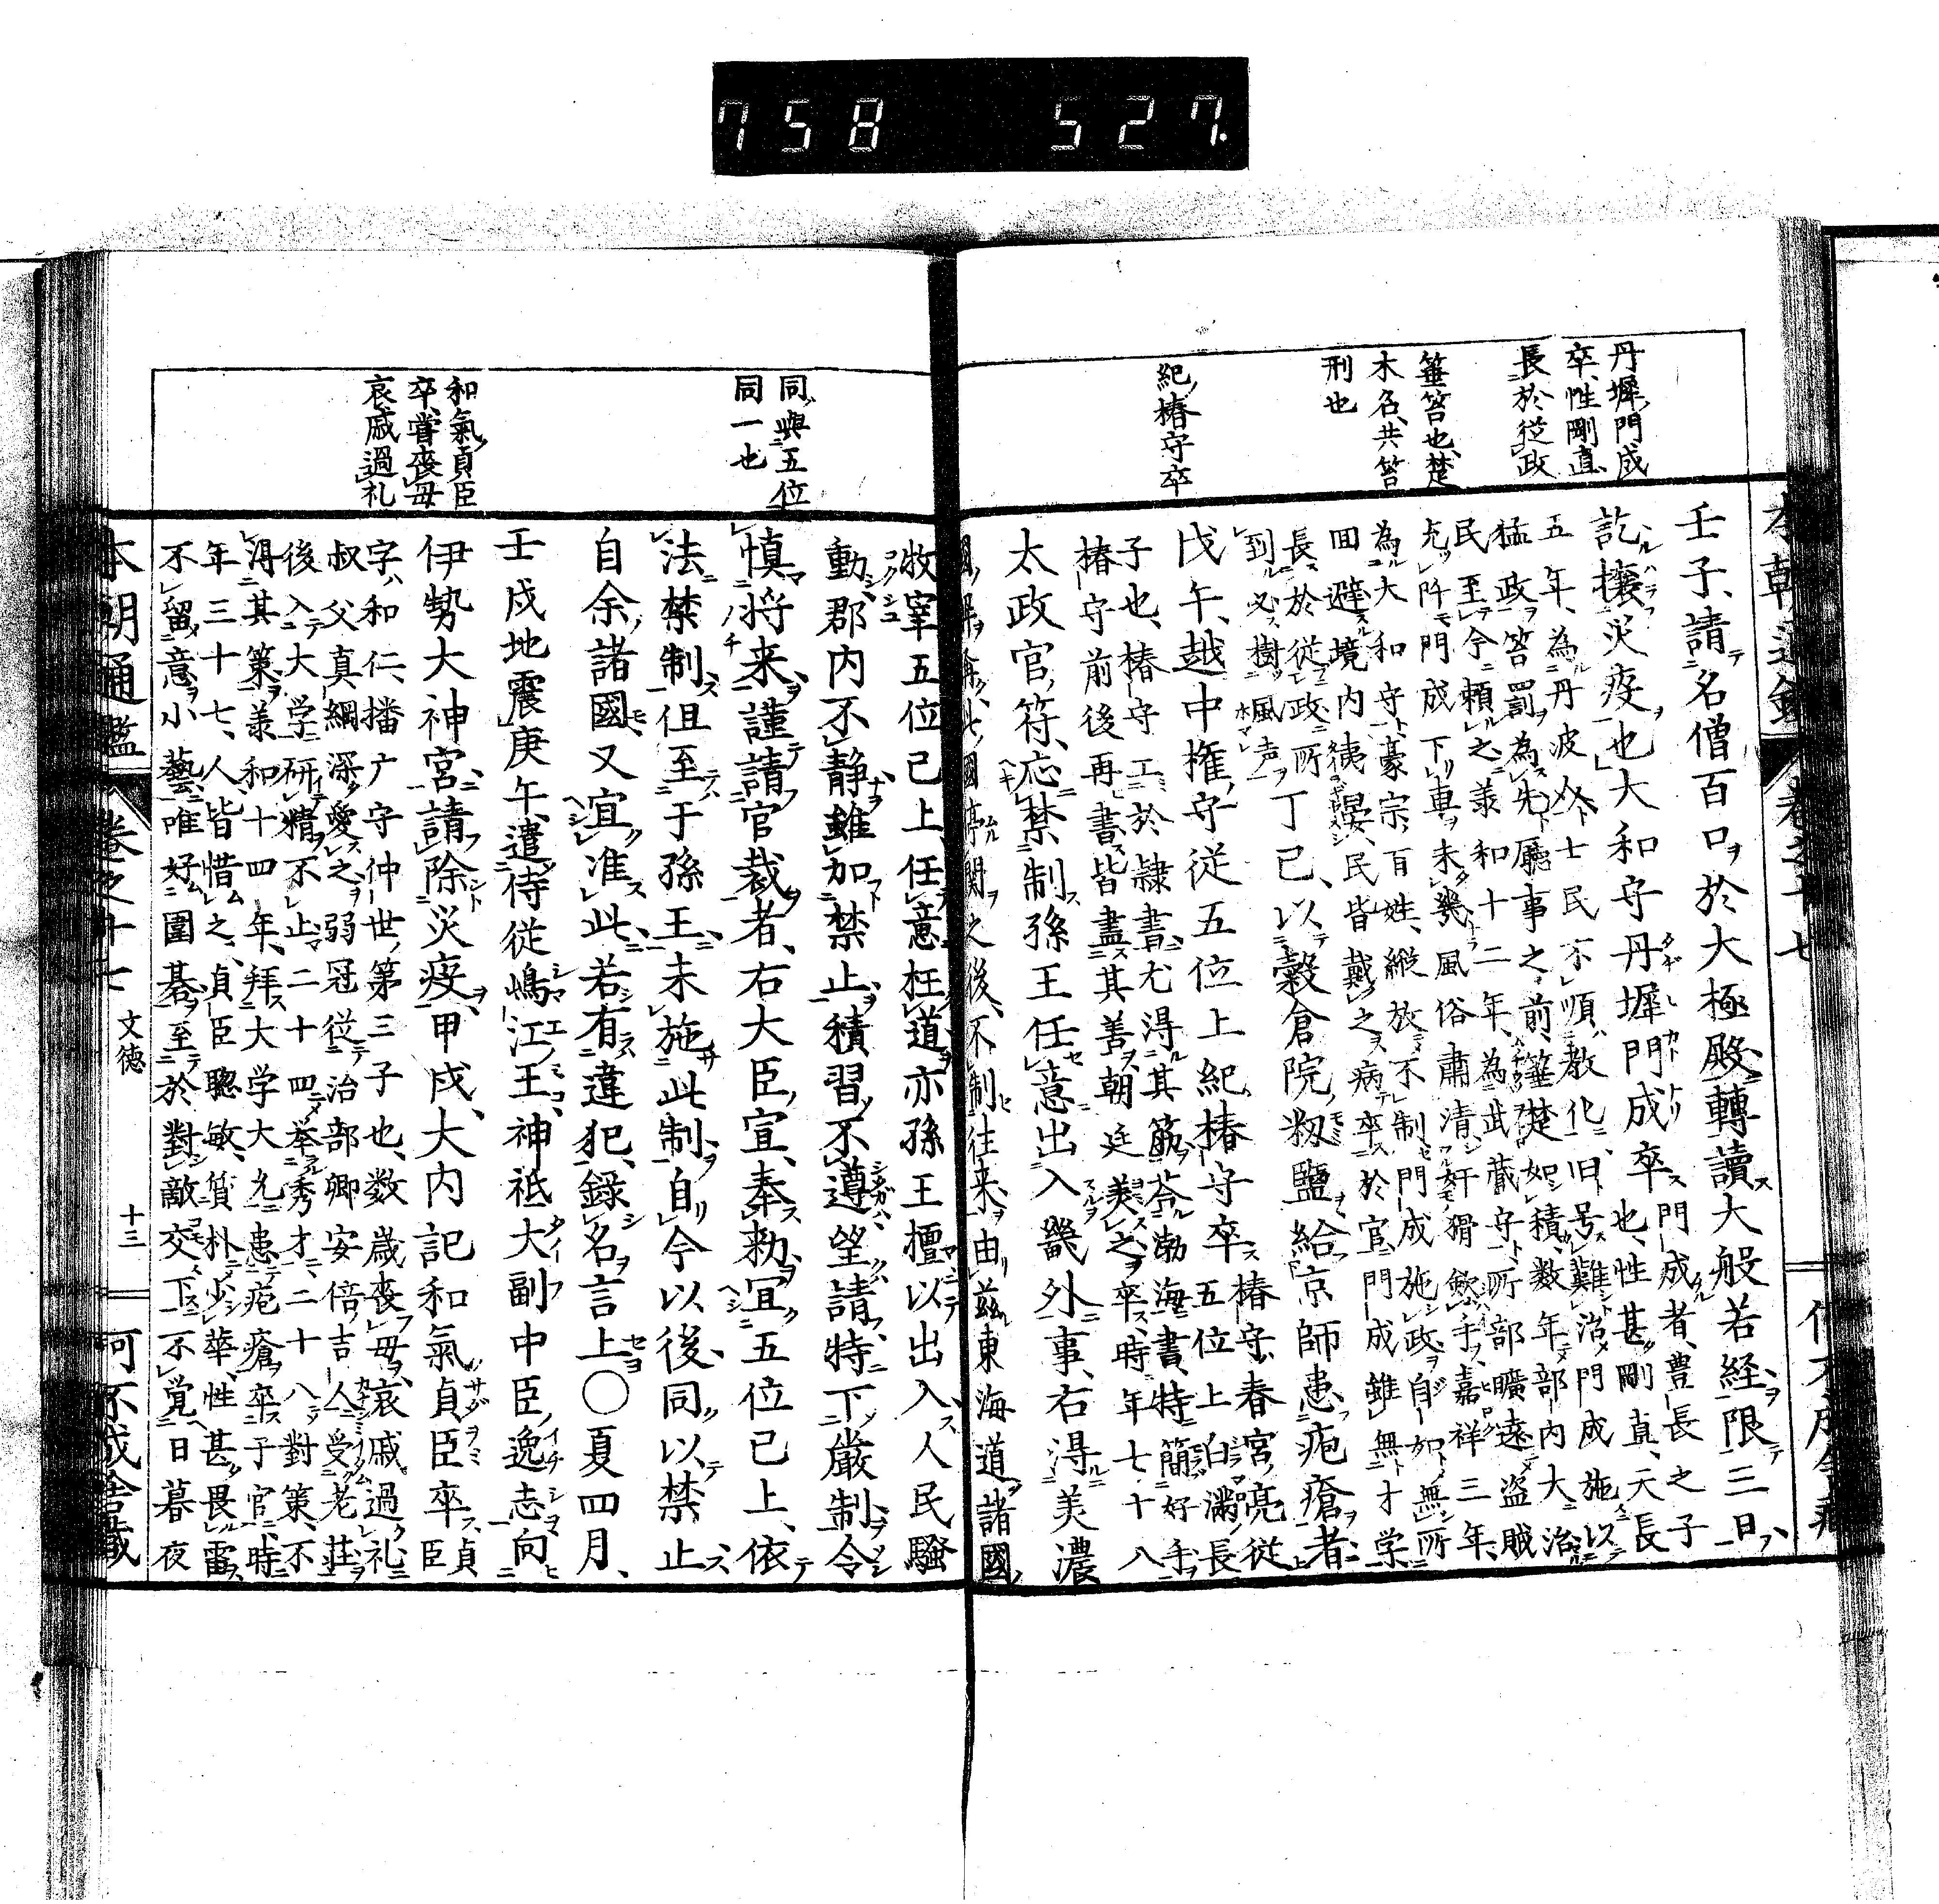 758 527.
丹墀門成
卒、性剛直
長於従政
箠笞也、楚
木名、共笞
刑也
紀椿守卒
壬子、請名僧百口於大極殿、轉讀大般若経、限三日、
訖、攘災疫也、大和守丹墀門成卒
門成者、豊長之子
也、性甚剛直、天長
五年、為丹波介、士民不順教化、旧号難治、門成施以
猛政、笞罰為先、廳事之前、箠楚如積、数年部内大治
民至今頼之、羕和十二年、為武藏守、所部曠遠、盗賊
充阡、門成下車、未幾風俗肅清、奸猾歛手、嘉祥三年、
為大和守、豪宗百姓、縦放不制、門成施政自如、無所
囬避、境内徳晏、民皆戴之、病卒於官、門成雖無才学、
長於従政、所
到必樹風声
丁己、以穀倉院籾鹽、給京師患疱瘡者、
戊午、越中権守従五位上紀椿守卒
椿守、春宮亮従
五位上白満長
子也、椿守工於隷書、尤淂其筋、荅渤海書、特簡好手、
椿守前後再書、皆盡其善、朝廷美之、卒時年七十八
太政官符、応禁制孫王任意出入畿外事、右淂美濃
國解偁、此國停関之後、不制往来、由茲東海道諸國、
同與五位
同一也
和氣貞臣
卒、嘗喪母
哀戚過礼
牧宰五位已上、任意枉道、亦孫王擅以出入、人民騒
動、郡内不静、雖加禁止、積習不遵、望請特下嚴制、令
慎将来、謹請官裁者、右大臣宣、奉勅、宜五位已上、依
法禁制、但至于孫王、未施此制、自今以後、同以禁止、
自余諸國、又宜准此、若有違犯、録名言上〇夏四月、
壬戍地震、庚午、遣侍従嶋江王、神祗大副中臣逸志、向
伊勢大神宮、請除災疫、甲戍、大内記和氣貞臣卒
貞臣
字和仁、播广守仲世第三子也、数歳喪母、哀戚過礼
叔父真綱深愛之、弱冠従治部卿安倍吉人、受老莊
後入大学、研精不止、二十四举秀才、二十八對策、不
淂其第、羕和十四年、拜大学大允、患疱瘡、卒于官、時
年三十七、人皆惜之、貞臣聰敏、質朴少華、性甚畏雷
不留意小藝、唯好圍碁、至於對敵交下、不覚日暮夜
本朝通鑑 巻之十七 文徳 十三 可不成舎藏